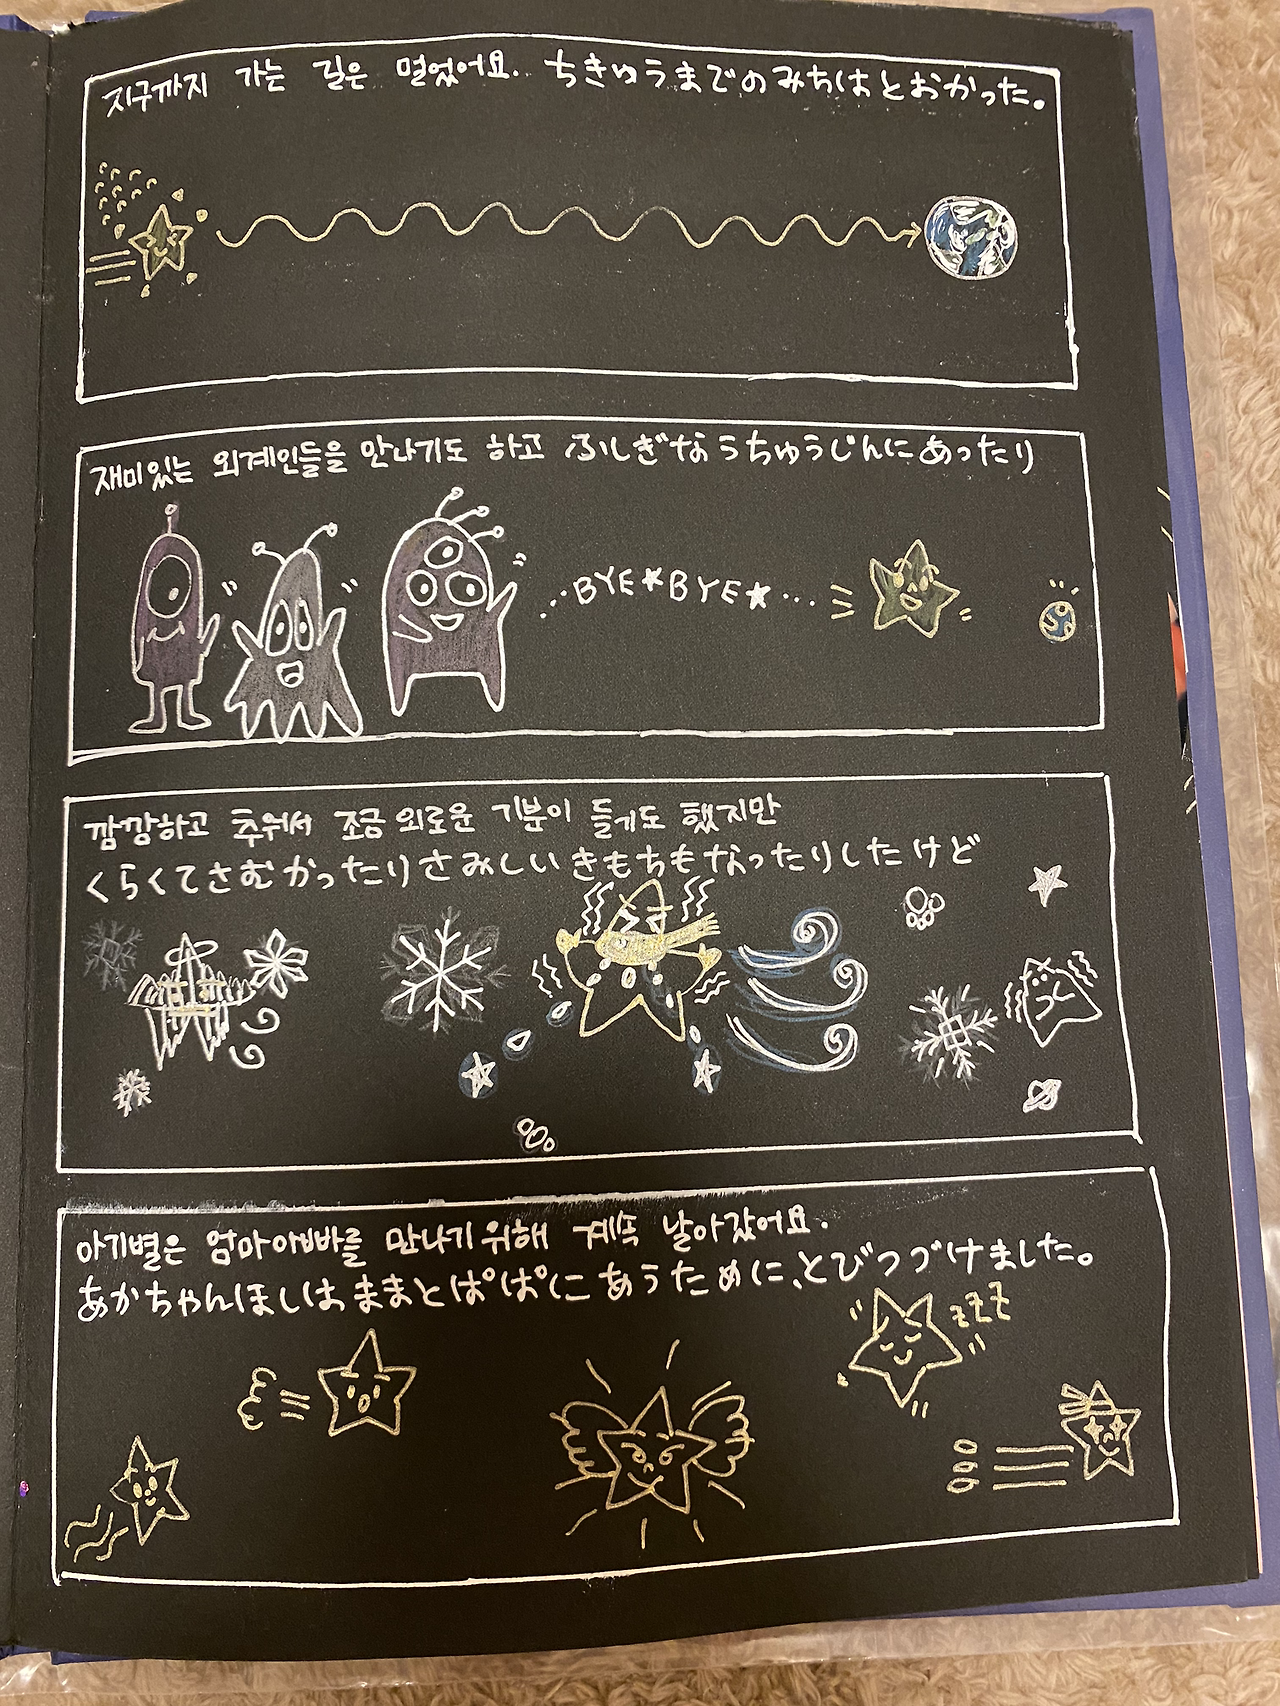 지구까지 가는 길은 멀었어요. ちきゅうまでのみちはとおかった。
재미있는 외계인들을 만나기도 하고 ふしぎなうちゅうじんにあったり
...BYE★BYE★...
깜깜하고 추워서 조금 외로운 기분이 들기도 했지만
くらくてさむかったりさみしいきもちもなったりしたけど
아기별은 엄마아빠를 만나기위해 계속 날아갔어요.
あかちゃんほしはままとぱぱにあうために、とびつづけました。
zzz